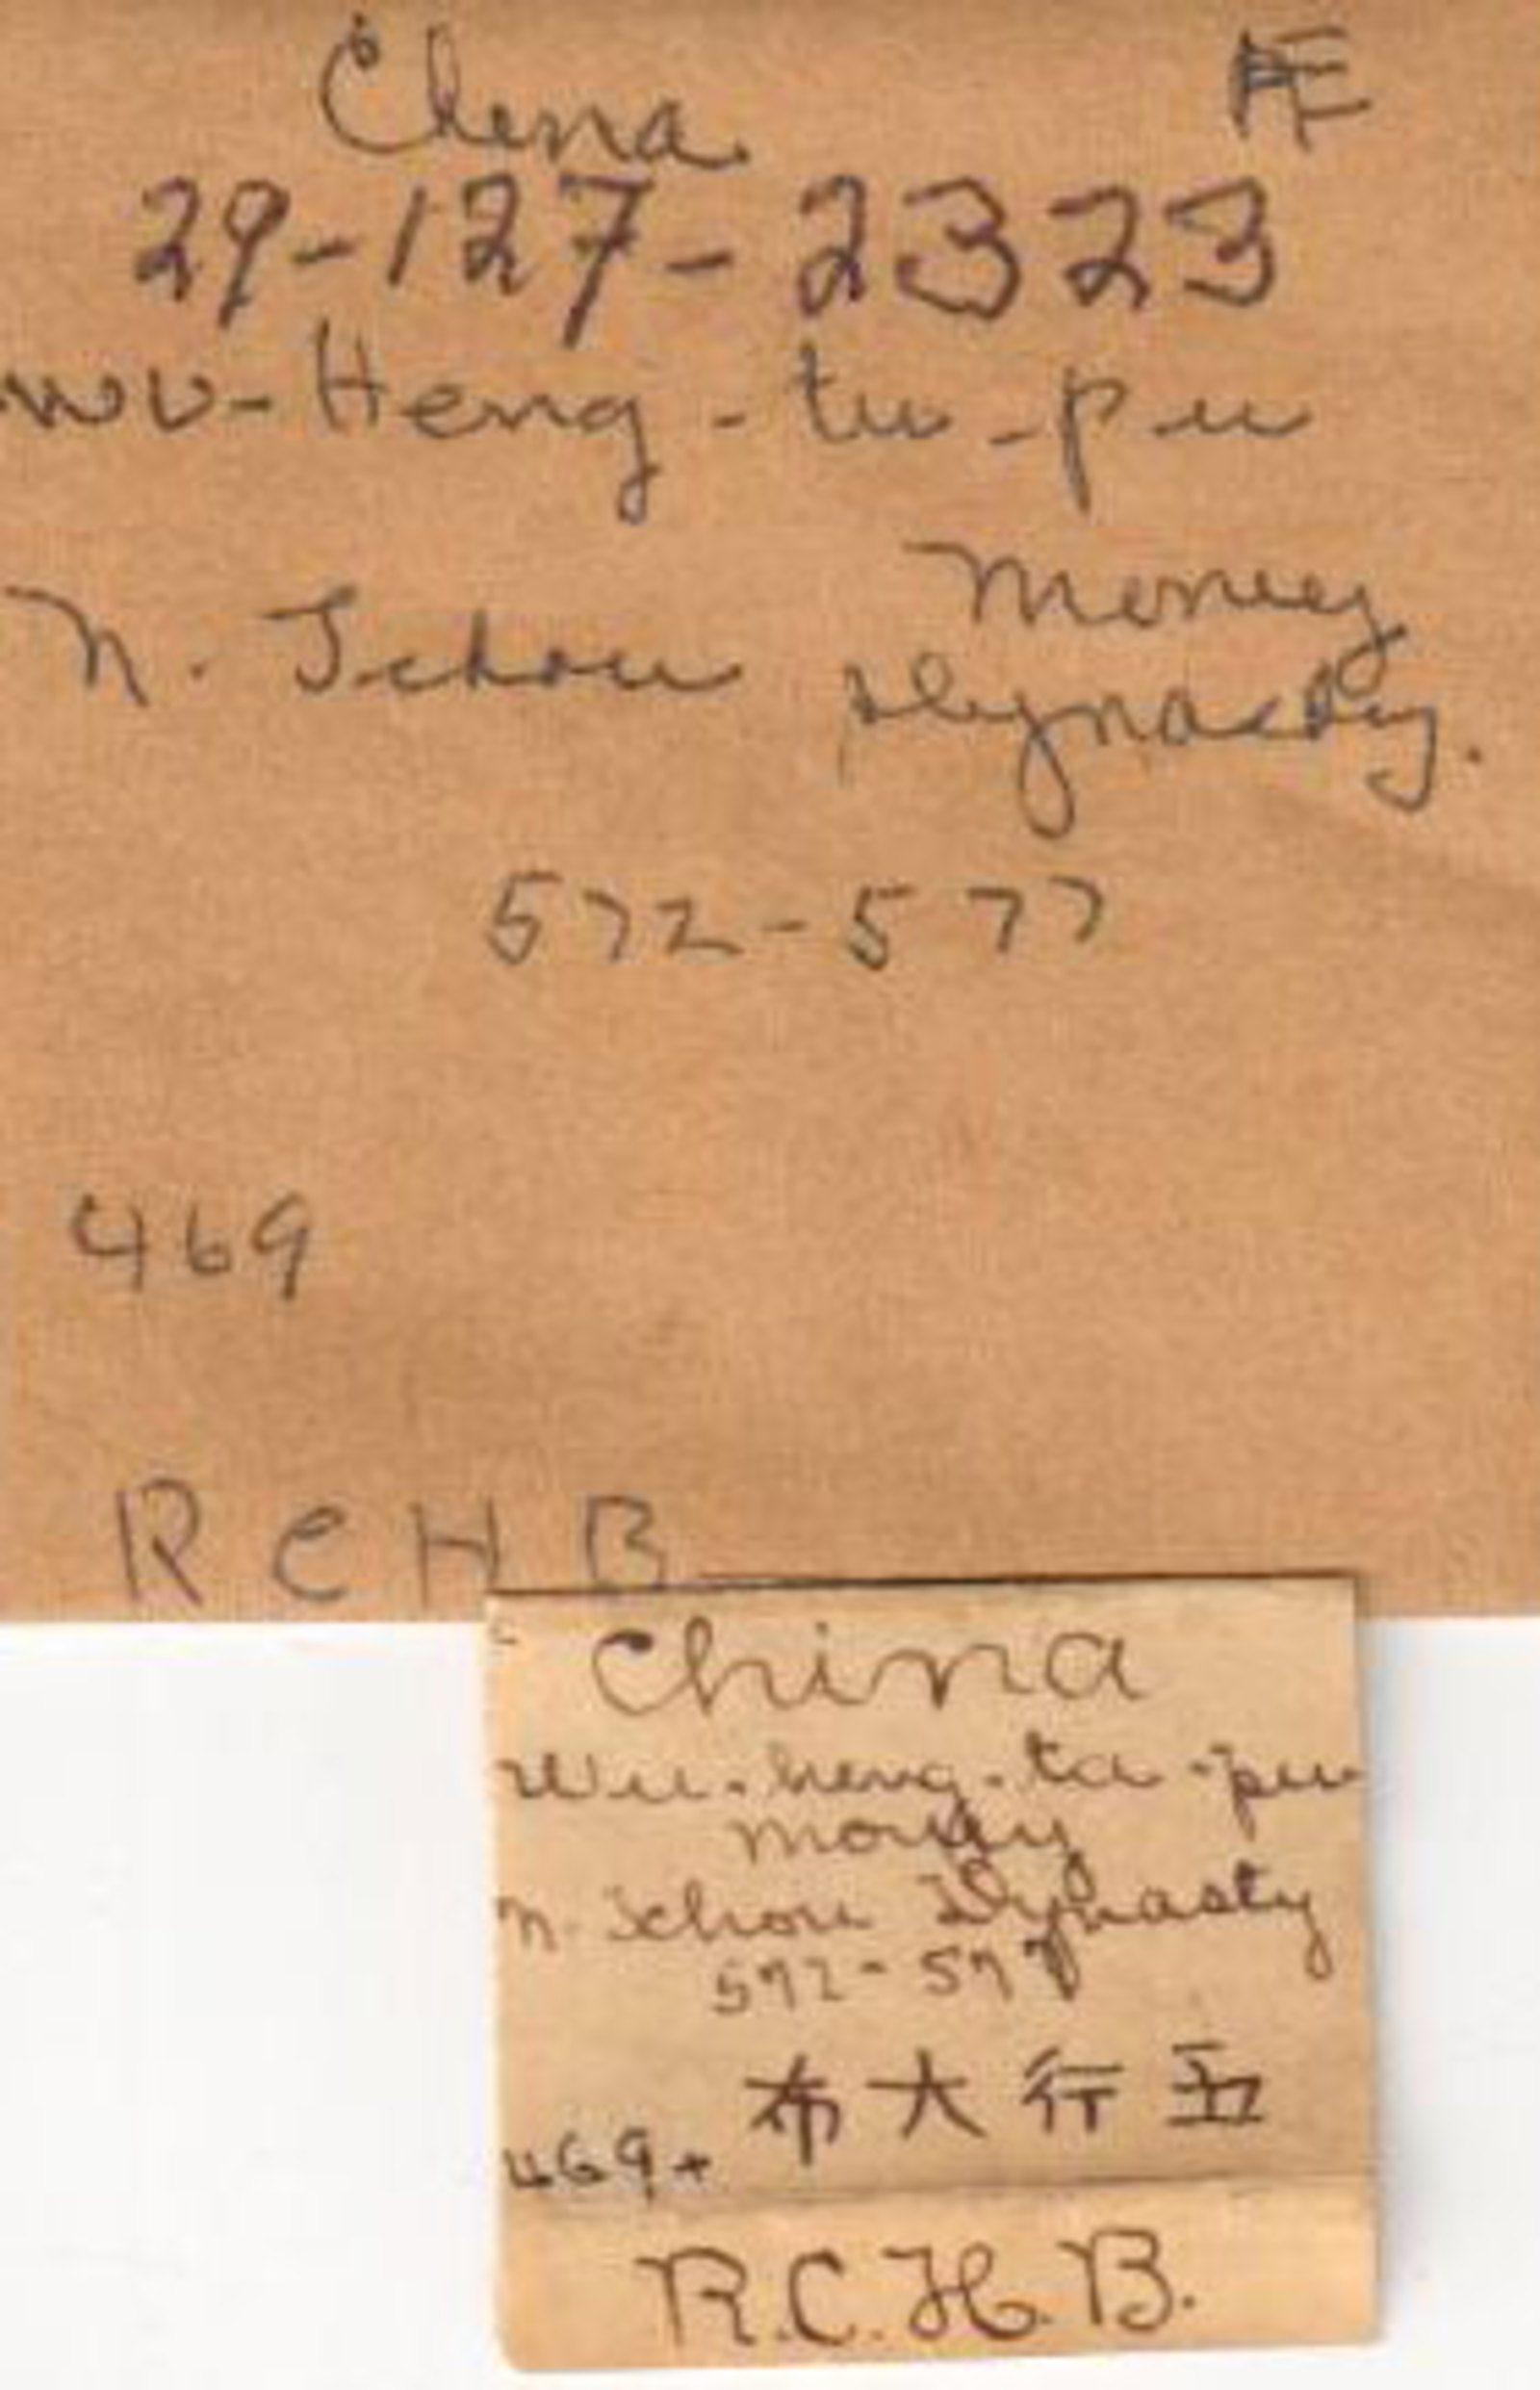 China Æ
29-127-2323
wu-Heng-tu-pu
Money
N. Tchou Dynasty.
572-577
469
R C H B
China
Wu-heng-ta-pu
money
N. Tchou Dynasty
572-577
布大行五
469+
R.C.H.B.